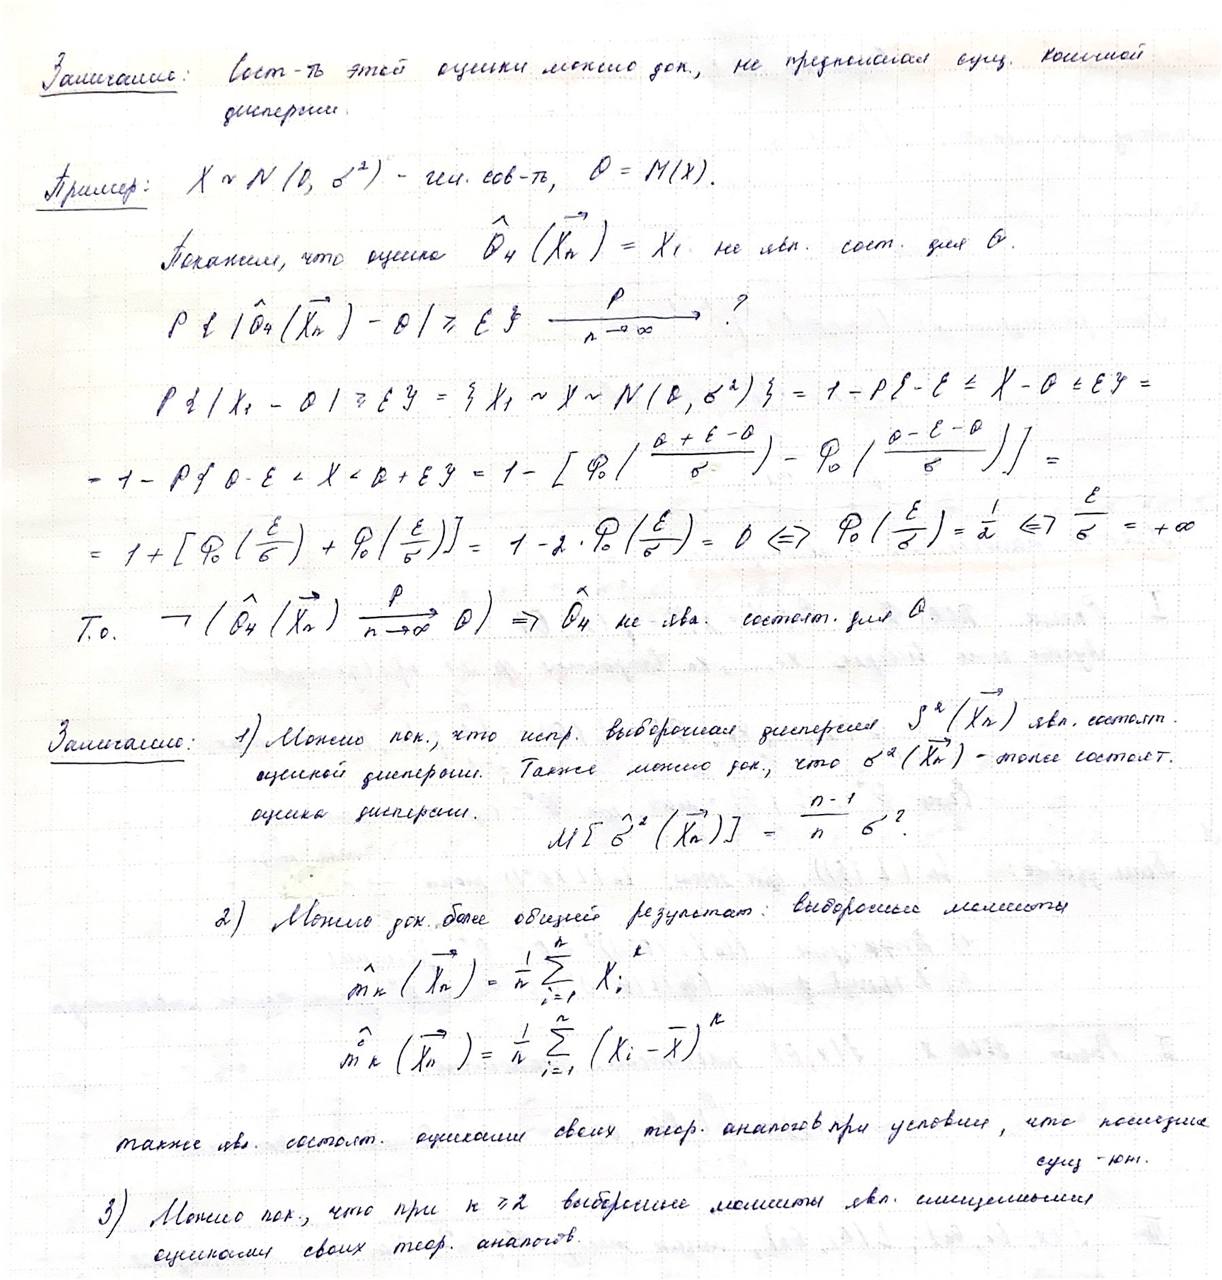 Замечание: Сост-ть этой оценки можно док., не предполагая сущ. конечной
дисперсии.
Пример: X ~ N(θ, σ²) - ген. сов-ть, θ = M(X).
Покажем, что оценка θ̂₄(X⃗ₙ) = X₁ не явл. сост. для θ.
P{|θ̂₄(X⃗ₙ) - θ| ≥ ε} —P→ n→∞ ?
P{|X₁ - θ| ≥ ε} = {X₁ ~ X ~ N(θ, σ²)} = 1 - P{-ε ≤ X - θ ≤ ε} =
= 1 - P{θ-ε < X < θ+ε} = 1 - [Φ₀((θ+ε-θ)/σ) - Φ₀((θ-ε-θ)/σ)] =
= 1 + [Φ₀(ε/σ) + Φ₀(ε/σ)] = 1 - 2·Φ₀(ε/σ) = 0 ⟺ Φ₀(ε/σ) = 1/2 ⟺ ε/σ = +∞
Т.о. ¬(θ̂₄(X⃗ₙ) —P→ n→∞ θ) ⟹ θ̂₄ не явл. состоят. для θ
Замечание: 1) Можно пок., что испр. выборочная дисперсия S²(X⃗ₙ) явл. состоят.
оценкой дисперсии. Также можно док., что σ²(X⃗ₙ) - тоже состоят.
оценка дисперсии.
M[σ̂²(X⃗ₙ)] = (n-1)/n σ².
2) Можно док. более общий результат: выборочные моменты
m̂ₖ(X⃗ₙ) = 1/n ∑ᵢ₌₁ⁿ Xᵢᵏ
m̂̊ₖ(X⃗ₙ) = 1/n ∑ᵢ₌₁ⁿ (Xᵢ - X̄)ᵏ
также явл. состоят. оценками своих теор. аналогов при условии, что последние
сущ-ют.
3) Можно пок., что при k ≥ 2 выборочные моменты явл. смещенными
оценками своих теор. аналогов.